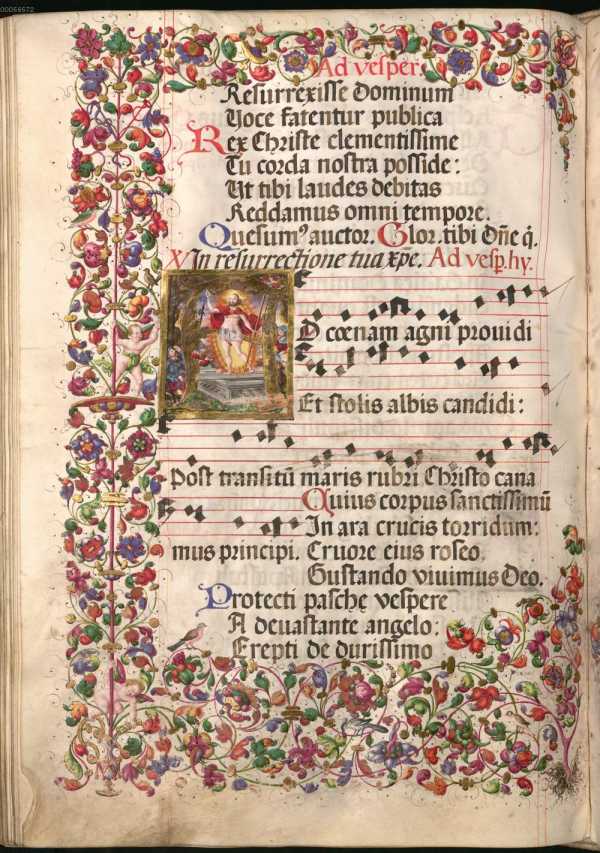 00056572
Ad vesper.
Resurrexisse Dominum
Voce fatentur publica
Rex Christe clementissime
Tu corda nostra posside:
Ut tibi laudes debitas
Reddamus omni tempore.
Quesumꝰ auctor. Glor. tibi Dñe q̃.
℣ In resurrectione tua xp̃e. Ad vesp. hy.
D cœnam agni prouidi
Et stolis albis candidi:
Post transitũ maris rubri Christo cana
Quius corpus sanctissimũ
In ara crucis torridum:
mus principi. Cruore eius roseo.
Gustando vivimus Deo.
Protecti pasche vespere
A deuastante angelo:
Erepti de durissimo